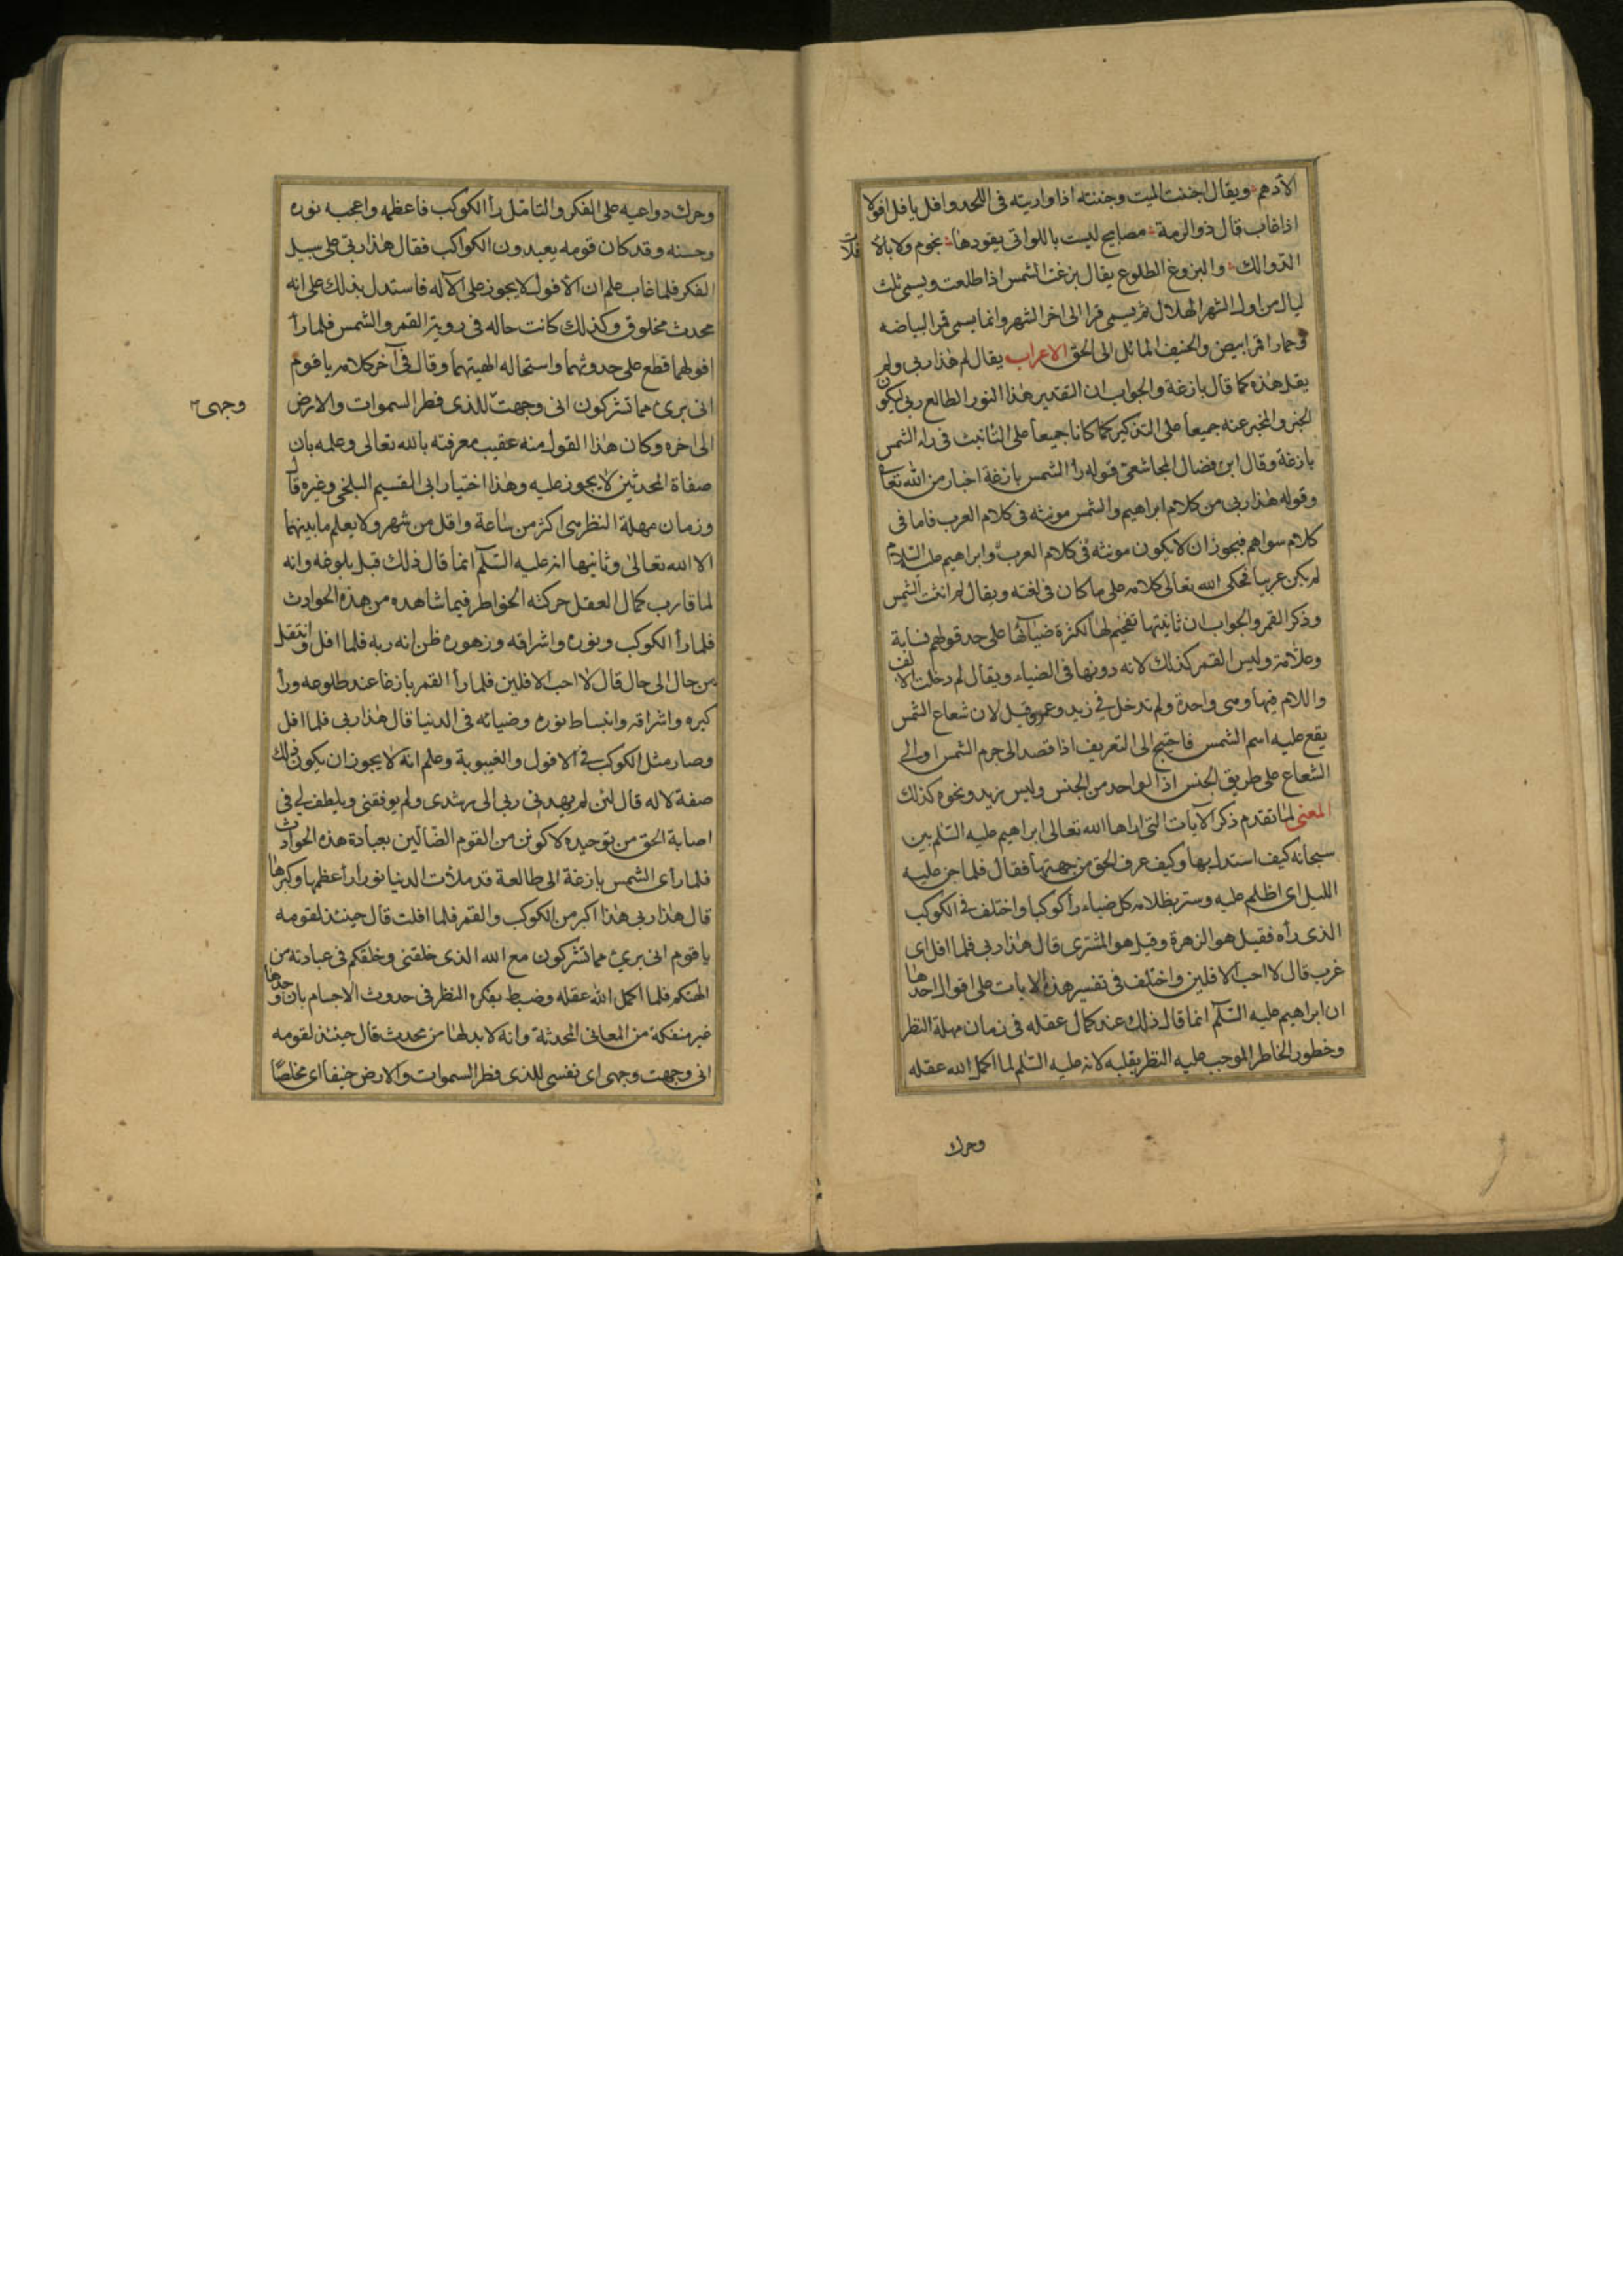 الادهم ويقال اجننت الميت وجننته اذا واريته فى اللحد وافل يافل افولا
اذا غاب قال ذو الرمة مصابيح ليست باللواتى يقودها نجوم ولا بالآ
فلات
الدوالك والبزوغ الطلوع يقال بزغت الشمس اذا طلعت ويسمى ثلث
ليال من اول الشهر الهلال ثم يسمى قمرا الى اخر الشهر وانما يسمى قمر البياضه
وحمار اقمر ابيض والحنيف المائل الى الحق الاعراب يقال لم هذا ربى ولم
يقل هذه كما قال بازغة والجواب ان التقدير هذا النور الطالع ربى ليكون
الخبر والمخبر عنه جميعا على التذكير كما كانا جميعا على التانيث فى راء الشمس
بازغة وقال ابن فضال المجاشعى قوله رأ الشمس بازغة اخبار من الله تعا
وقوله هذا ربى من كلام ابراهيم والشمس مونثه فى كلام العرب فاما فى
كلام سواهم فيجوز ان لا يكون مونثه فى كلام العرب وابراهيم عليه السلام
لم يكن عربيا فحكى الله تعالى كلامه على ما كان فى لغته ويقال لم انثت الشمس
وذكر القمر والجواب ان تانيثها تفخيم لها لكثرة ضيائها على حد قولهم نسابة
وعلامة وليس القمر كذلك لانه دونها فى الضياء ويقال لم دخلت الالف
واللام فيها وهى واحدة ولم تدخل فى زيد وعمرو قيل لان شعاع الشمس
يقع عليه اسم الشمس فاحتيج الى التعريف اذا قصد الى جرم الشمس او الى
الشعاع على طريق الجنس اذ الواحد من الجنس وليس زيد ونحوه كذلك
المعنى لما تقدم ذكر الآيات التى اراها الله تعالى ابراهيم عليه السلم بين
سبحانه كيف استدل بها وكيف عرف الحق من جهتها فقال فلما جن عليه
الليل اى اظلم عليه وستر بظلامه كل ضياء رأ كوكبا واختلف فى الكوكب
الذى رأه فقيل هو الزهرة وقيل هو المشترى قال هذا ربى فلما افل اى
غرب قال لا احب الافلين واختلف فى تفسير هذه الايات على اقوال احدها
ان ابراهيم عليه السلم انما قال ذلك عند كمال عقله فى زمان مهلة النظر
وخطور الخاطر الموجب عليه النظر بقلبه لانه عليه السلم لما اكمل الله عقله
وحرك
وحرك دواعيه على الفكر والتامل رأ الكوكب فاعظمه واعجبه نوره
وحسنه وقد كان قومه يعبدون الكواكب فقال هذا ربى على سبيل
الفكر فلما غاب علم ان الأفول لا يجوز على الآله فاستدل بذلك على انه
محدث مخلوق وكذلك كانت حاله فى روية القمر والشمس فلما رأ
افولهما قطع على حدوثهما واستحاله الهيتهما وقال فى آخر كلامه ياقوم
انى برى مما تشركون انى وجهت للذى فطر السموات والارض
وجهى
الى اخره وكان هذا القول منه عقيب معرفته بالله تعالى وعلمه بان
صفاة المحدثين لا يجوز عليه وهذا اختيار ابى القسيم البلخى وغيره قال
وزمان مهلة النظر هى اكثر من ساعة واقل من شهر ولا يعلم ما بينهما
الا الله تعالى وثانيها انه عليه السلم انما قال ذلك قبل بلوغه وانه
لما قارب كمال العقل حركته الخواطر فيما شاهده من هذه الحوادث
فلما رأ الكوكب ونوره واشراقه وزهوره ظن انه ربه فلما افل وانتقل
من حال الى حال قال لا احب الافلين فلما رأ القمر بازغا عند طلوعه ورأ
كبره واشراقه وانبساط نوره وضيائه فى الدنيا قال هذا ربى فلما افل
وصار مثل الكوكب فى الافول والغيبوبة وعلم انه لا يجوز ان يكون ذلك
صفة لاله قال لئن لم يهدنى ربى الى رشدى ولم يوفقنى ويلطف لى فى
اصابة الحق من توحيده لاكونن من القوم الضالين بعبادة هذه الحوادث
فلما رأى الشمس بازغة اى طالعة قد ملأت الدنيا نورا رأ عظمها وكبرها
قال هذا ربى هذا اكبر من الكوكب والقمر فلما افلت قال حينئذ لقومه
ياقوم انى برىء مما تشركون مع الله الذى خلقنى وخلقكم فى عبادته من
الهتكم فلما اكمل الله عقله وضبط بفكره النظر فى حدوث الاجسام بان وجدها
غير منفكة من المعانى المحدثة وانه لا بد لها من محدث قال حينئذ لقومه
انى وجهت وجهى اى نفسى للذى فطر السموات والارض حنيفا اى مخلصا